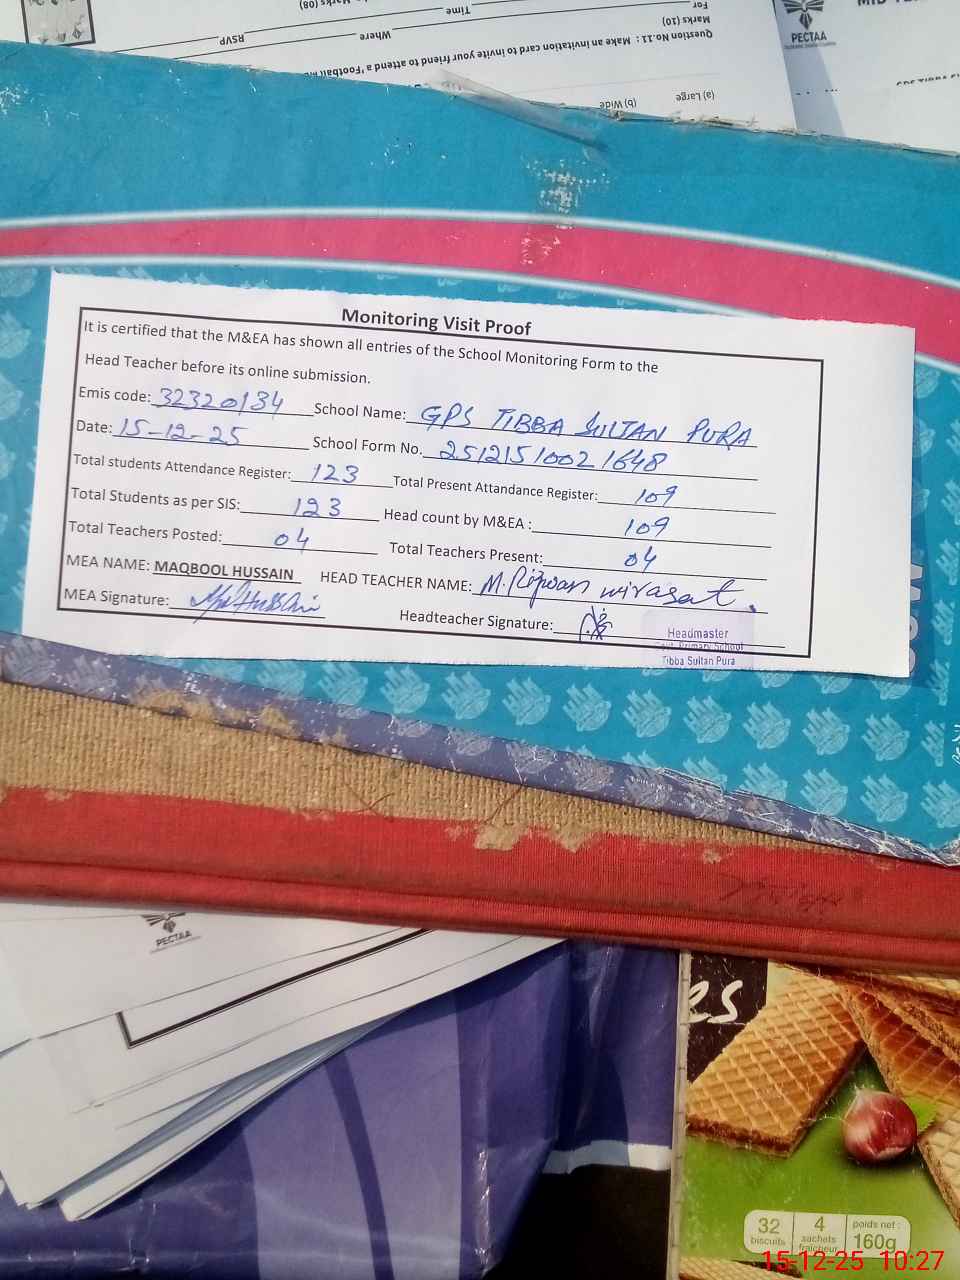 (a) Large (b) Wide
Question No.11: Make an invitation card to invite your friend to attend a 'Football
Marks (10)
For Time
Where RSVP
Marks (08)
PECTAA
Monitoring Visit Proof
It is certified that the M&EA has shown all entries of the School Monitoring Form to the
Head Teacher before its online submission.
Emis code: 32320134 School Name: GPS TIBBA SULTAN PURA
Date: 15-12-25 School Form No. 2512151002 1648
Total students Attendance Register: 123 Total Present Attandance Register: 109
Total Students as per SIS: 123 Head count by M&EA : 109
Total Teachers Posted: 04 Total Teachers Present: 04
MEA NAME: MAQBOOL HUSSAIN HEAD TEACHER NAME: M. Rizwan wirasat.
MEA Signature: Headteacher Signature:
Headmaster
Govt. Primary School
Tibba Sultan Pura
PECTAA
es
32 biscuits
4 sachets fraîcheur
poids net : 160g
15-12-25 10:27